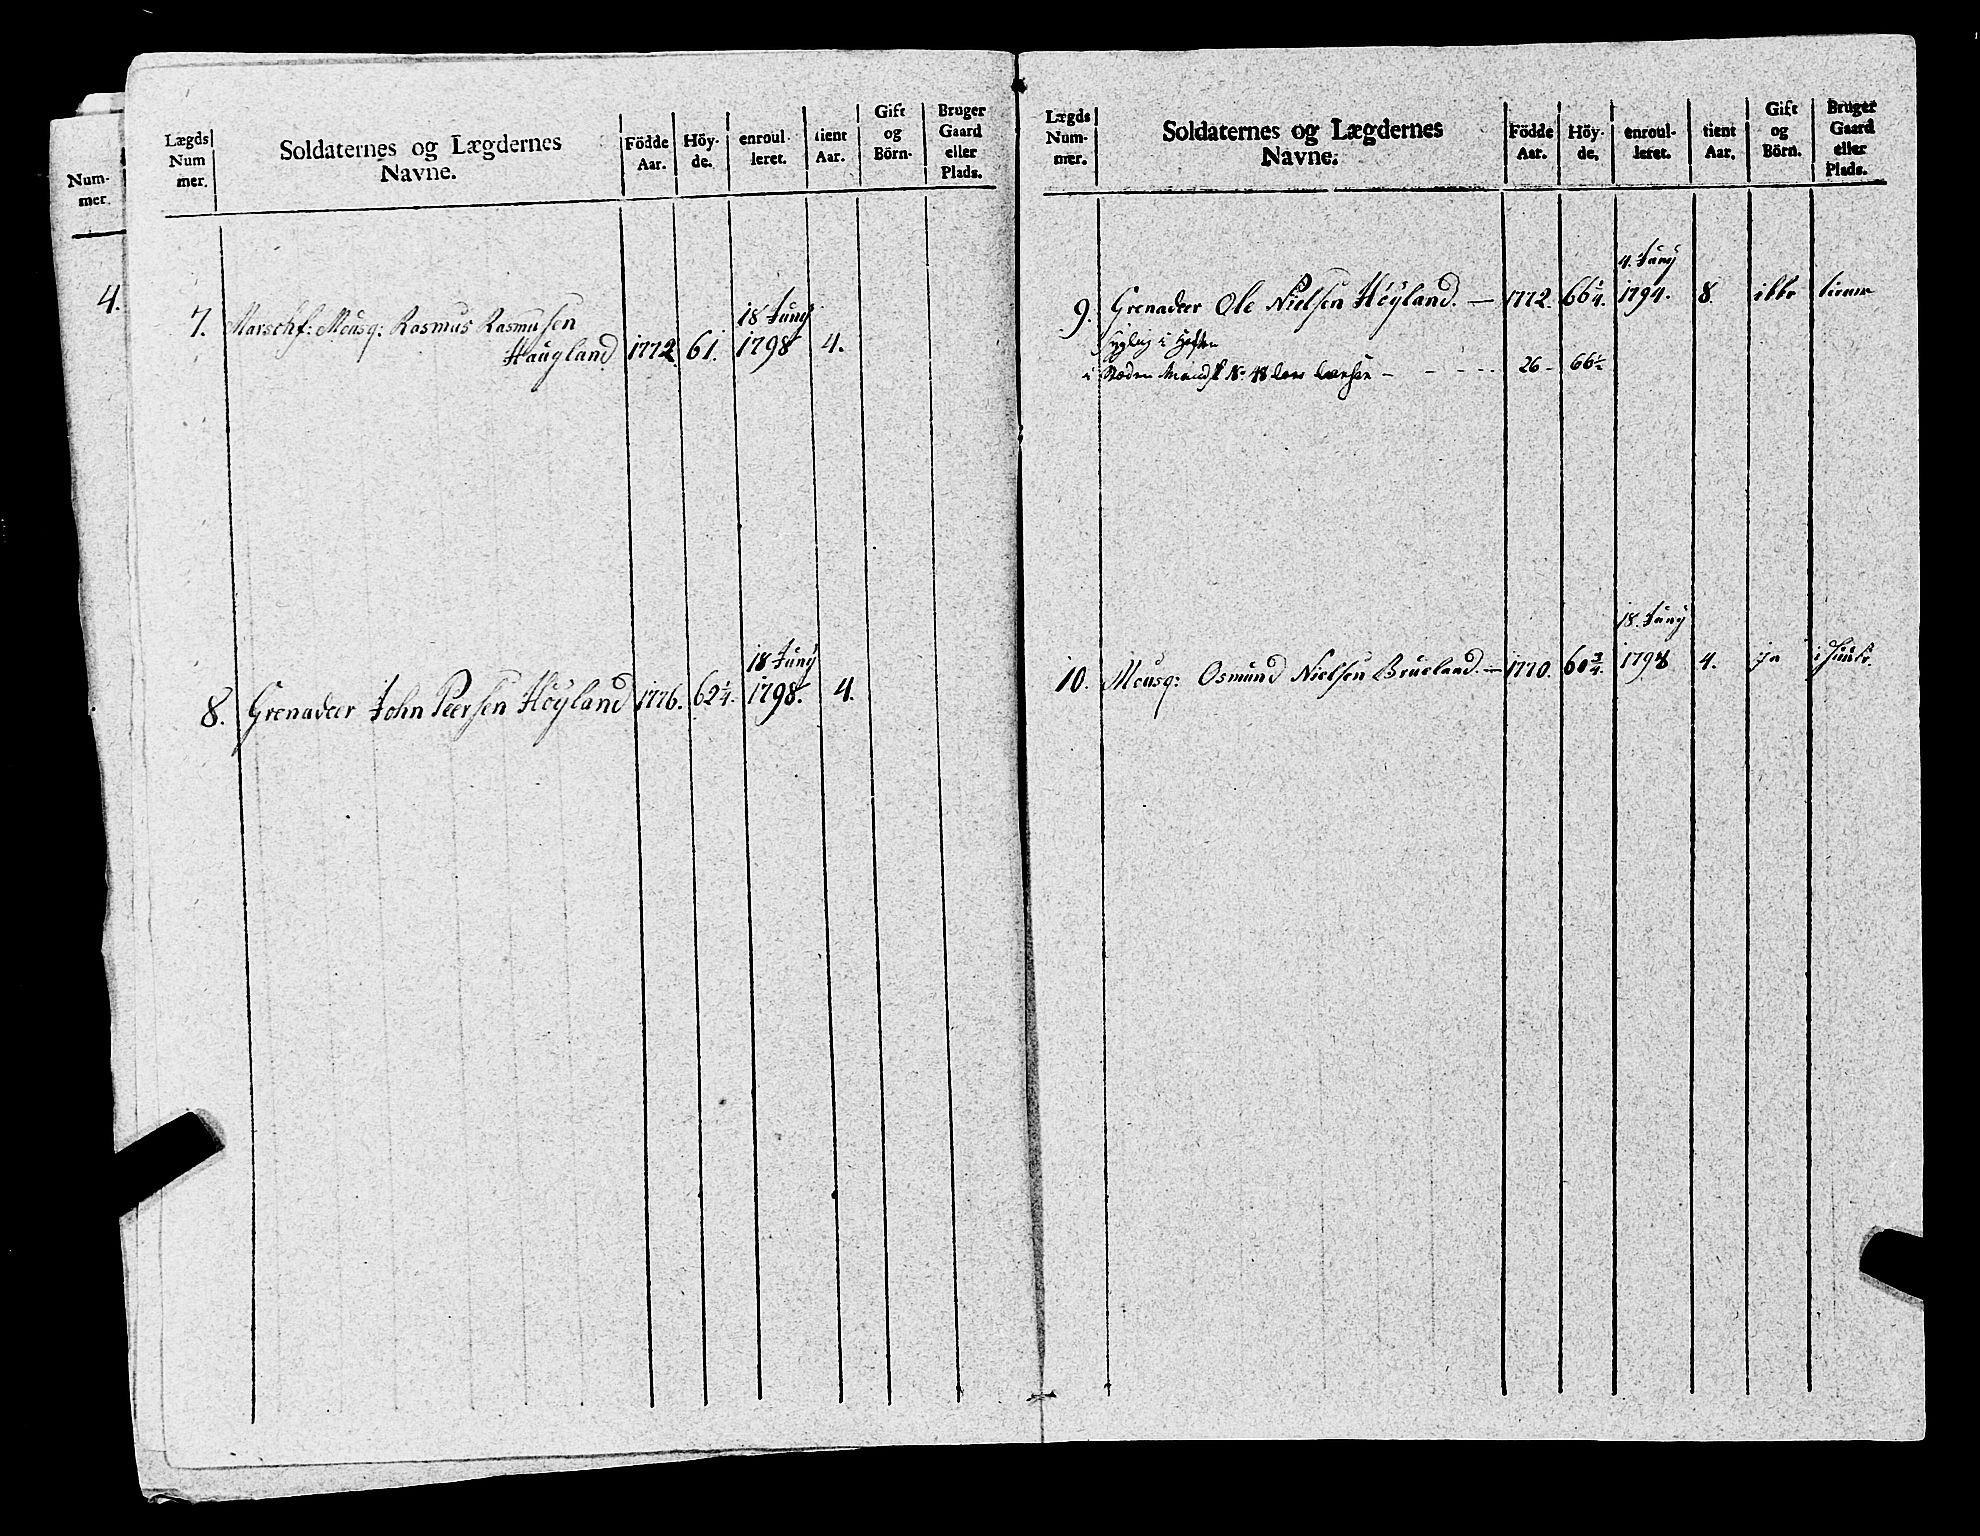 Num-
mer.
4.
Lægds
Num
mer.
Soldaternes og Lægdernes
Navne.
Födde
Aar.
Höy-
de.
enroul-
leret.
tient
Aar.
Gift
og
Börn.
Bruger
Gaard
eller
Plads.
18 Juny
7. Marschf: Mousq: Rasmus Rasmusen
Haugland 1772. 61. 1798 4.
18 Juny
8. Grenadeer John Peersen Höyland 1776. 62 1/4. 1798. 4.
Lægds
Num-
mer.
Soldaternes og Lægdernes
Navne.
Födde
Aar.
Höy-
de.
enroul-
leret.
tient
Aar.
Gift
og
Börn.
Bruger
Gaard
eller
Plads.
4. Juny
9. Grenadeer Ole Nielsen Höyland. — 1772. 66 1/4. 1794. 8
i
26 - 66 1/2
18. Juny
10. Mousq: Osmund Nielsen Brueland. — 1770. 60 3/4. 1798 4. Ja